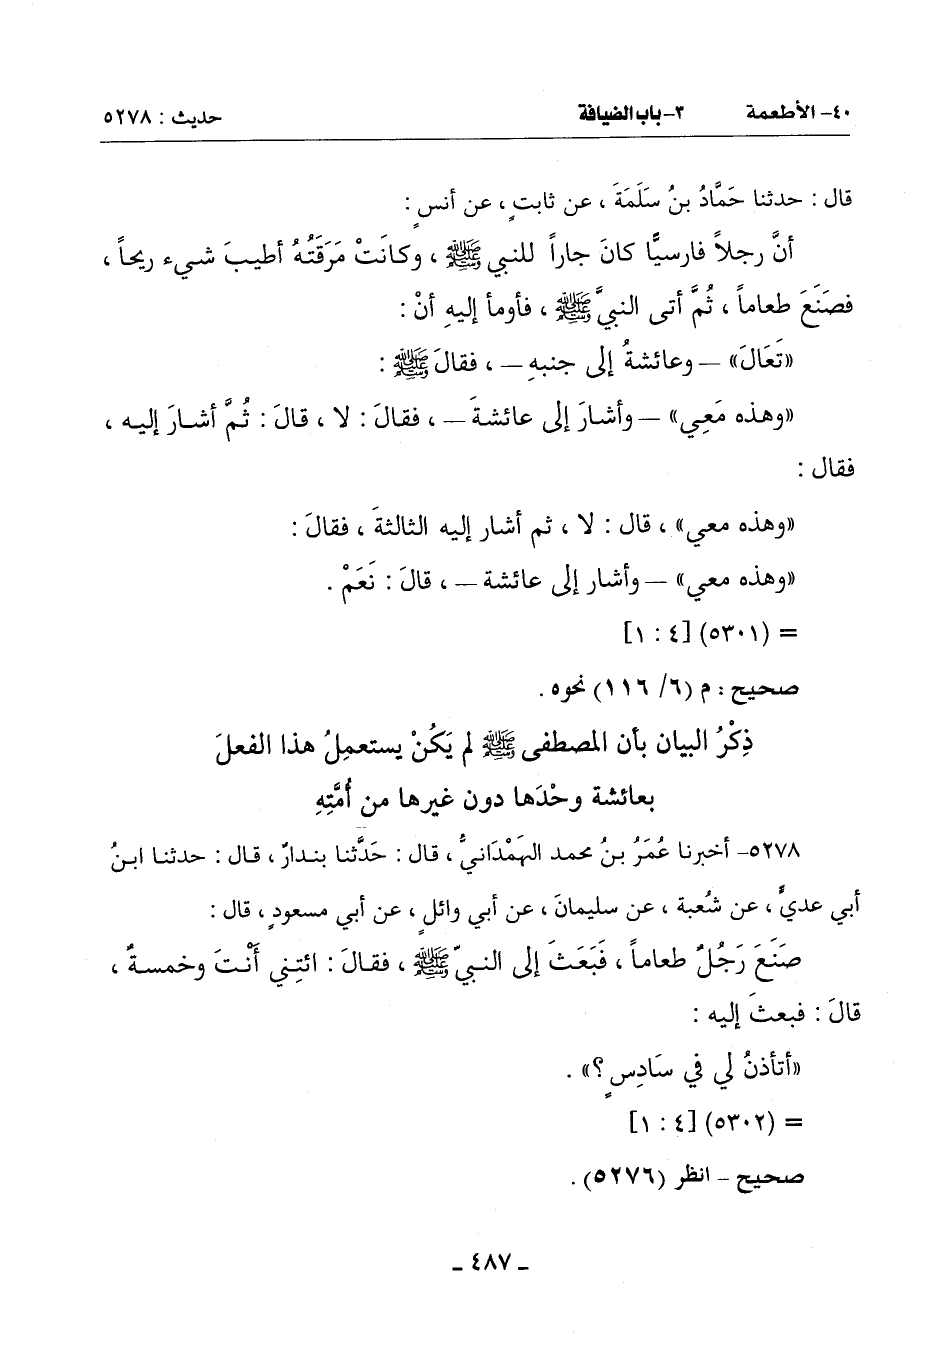 ٤٠- الأطعمة ٣- باب الضيافة حديث : ٥٢٧٨
قال : حدثنا حَمَّادُ بنُ سَلَمَةَ ، عن ثابتٍ ، عن أنسٍ :
أنَّ رجلاً فارسيًّا كانَ جاراً للنبي ﷺ ، وكانَتْ مَرَقَتُهُ أطيبَ شيء ريحاً ،
فصَنَعَ طعاماً ، ثُمَّ أتى النبيَّ ﷺ ، فأومأ إليهِ أنْ :
«تَعَالَ» – وعائشةُ إلى جنبهِ – ، فقالَ ﷺ :
«وهذه مَعِي» – وأشارَ إلى عائشةَ – ، فقالَ : لا ، قالَ : ثُمَّ أشارَ إليه ،
فقال :
«وهذه معي» ، قال : لا ، ثم أشار إليه الثالثةَ ، فقالَ :
«وهذه معي» – وأشار إلى عائشة – ، قالَ : نَعَمْ .
= (٥٣٠١) [٤ : ١]
صحيح : م (٦/ ١١٦) نحوه .
ذِكْرُ البيان بأن المصطفى ﷺ لم يَكُنْ يستعمِلُ هذا الفعلَ
بعائشة وحْدَها دون غيرها من أُمَّتِهِ
٥٢٧٨- أخبرنا عُمَرُ بنُ محمد الهَمْدَانيُّ ، قال : حَدَّثنا بندارٌ ، قال : حدثنا ابنُ
أبي عديٍّ ، عن شُعبة ، عن سليمانَ ، عن أبي وائلٍ ، عن أبي مسعودٍ ، قال :
صَنَعَ رَجُلٌ طعاماً ، فَبَعَثَ إلى النبيّ ﷺ ، فقالَ : ائتِني أَنْتَ وخمسةٌ ،
قالَ : فبعثَ إليه :
«أتأذنُ لي في سَادِسٍ ؟» .
= (٥٣٠٢) [٤ : ١]
صحيح – انظر (٥٢٧٦) .
- ٤٨٧ -